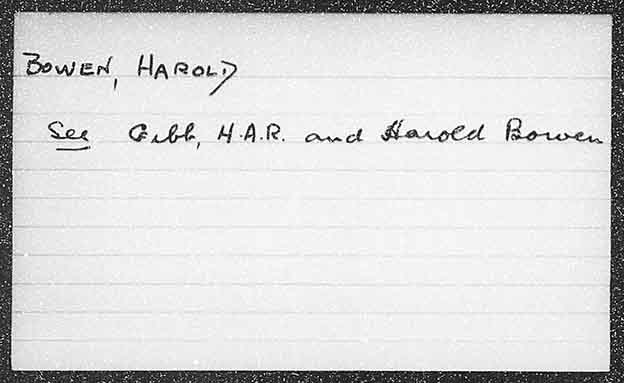 BOWEN, HAROLD
See Gibb, H.A.R. and Harold Bowen